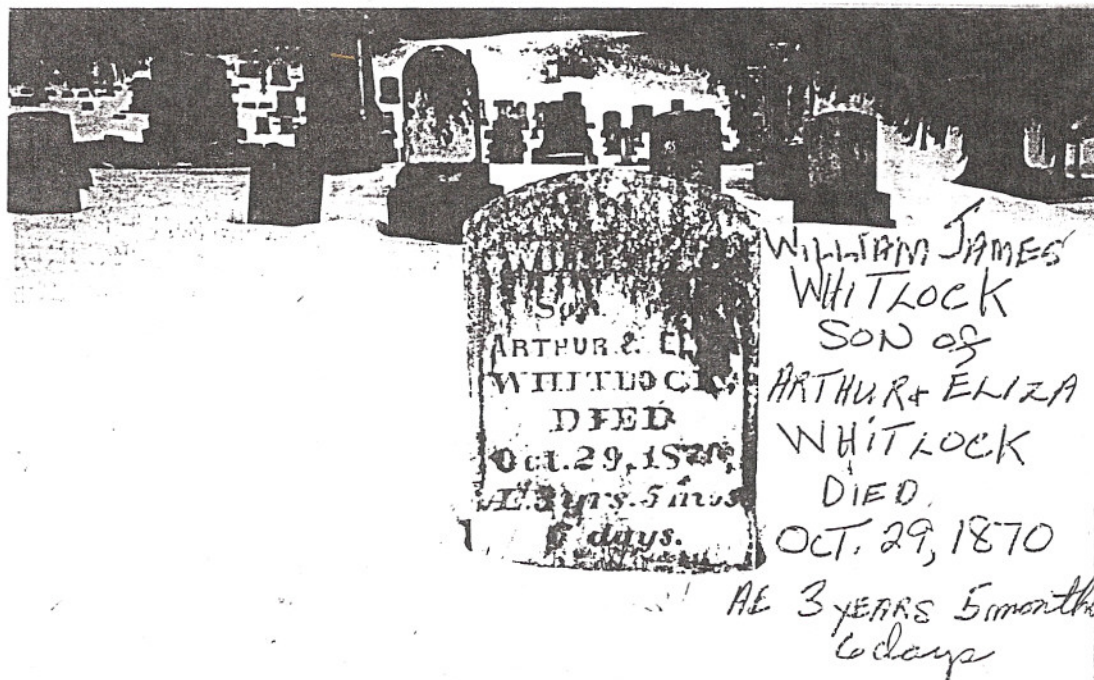 WILLIAM
Son
ARTHUR & EL
WHITLOCK,
DIED
Oct. 29, 1870,
Æ. 3 yrs. 5 mos
6 days.
WILLIAM JAMES
WHITLOCK
SON of
ARTHUR & ELIZA
WHITLOCK
DIED
OCT. 29, 1870
AE 3 YEARS 5 months
6 days